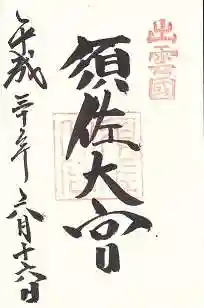 出雲國
須佐大宮
平成三十年六月十六日